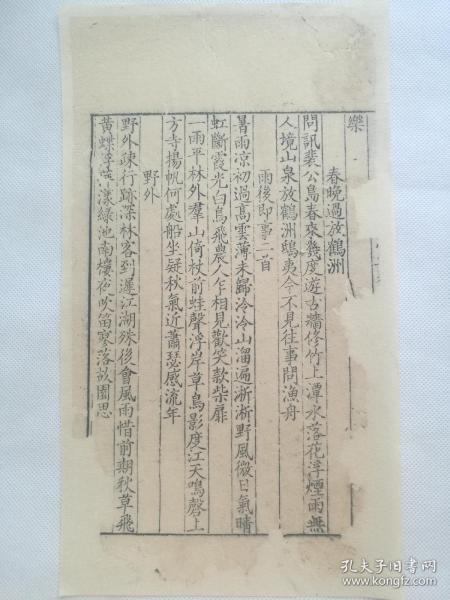 樂
春晚過放鶴洲
問訊裴公島春來幾度遊古牆修竹上潭水落花浮煙雨無
人境山泉放鶴洲鴟夷今不見往事問漁舟
雨後即事二首
暑雨凉初過高雲薄未歸泠泠山溜遍淅淅野風微日氣晴
虹斷霞光白鳥飛農人乍相見歡笑款柴扉
一雨平林外羣山倚杖前蛙聲浮岸草鳥影度江天鳴磬上
方寺揚帆何處船坐疑秋氣近蕭瑟感流年
野外
野外疎行跡深林客到遲江湖殊後會風雨惜前期秋草飛
黃蝶浮萍漾綠池南樓夜吹笛寥落故園思
孔夫子旧书网
www.kongfz.com